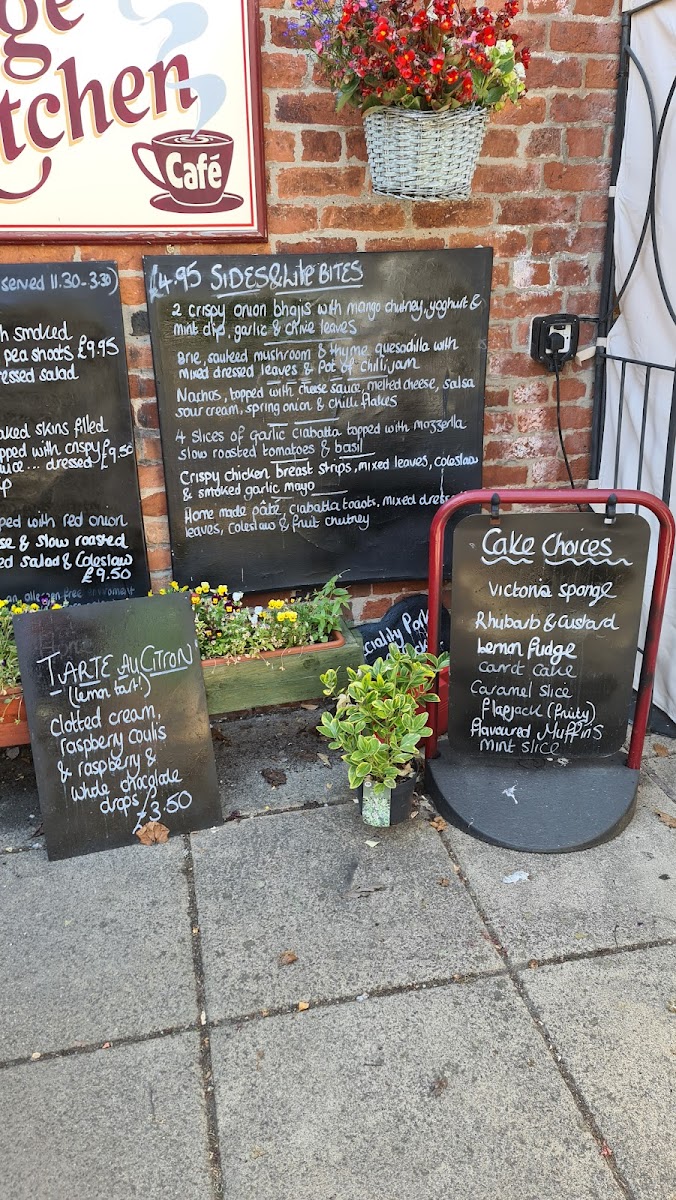 ge
tchen
Café
served 11.30-3.30)
smoked
pea shoots £9.95
ressed salad
aked skins filled
pped with crispy £9.50
uce... dressed
ped with red onion
se & slow roasted
ed salad & Coleslaw
£9.50
£4.95 SIDES & Lite BITES
2 crispy onion bhajis with mango chutney, yoghurt &
mint dip, garlic & chive leaves
Brie, sauteed mushroom & thyme quesadilla with
mixed dressed leaves & Pot of chilli jam
Nachos, topped with cheese sauce, melted cheese, salsa
sour cream, spring onion & chilli flakes
4 slices of garlic ciabatta topped with mozzerella
slow roasted tomatoes & basil
Crispy chicken breast strips, mixed leaves, coleslaw
& smoked garlic mayo
Home made pâté, ciabatta toasts, mixed dress
leaves, coleslaw & fruit chutney
TARTE AU CITRON
(lemon tart!)
clotted cream,
raspberry coulis
& raspberry &
white chocolate
drops £3.50
Cake Choices
Victoria sponge
Rhubarb & Custard
Lemon Fudge
Carrot Cake
Caramel slice
flapjack (fruity)
flavoured Muffins
Mint slice